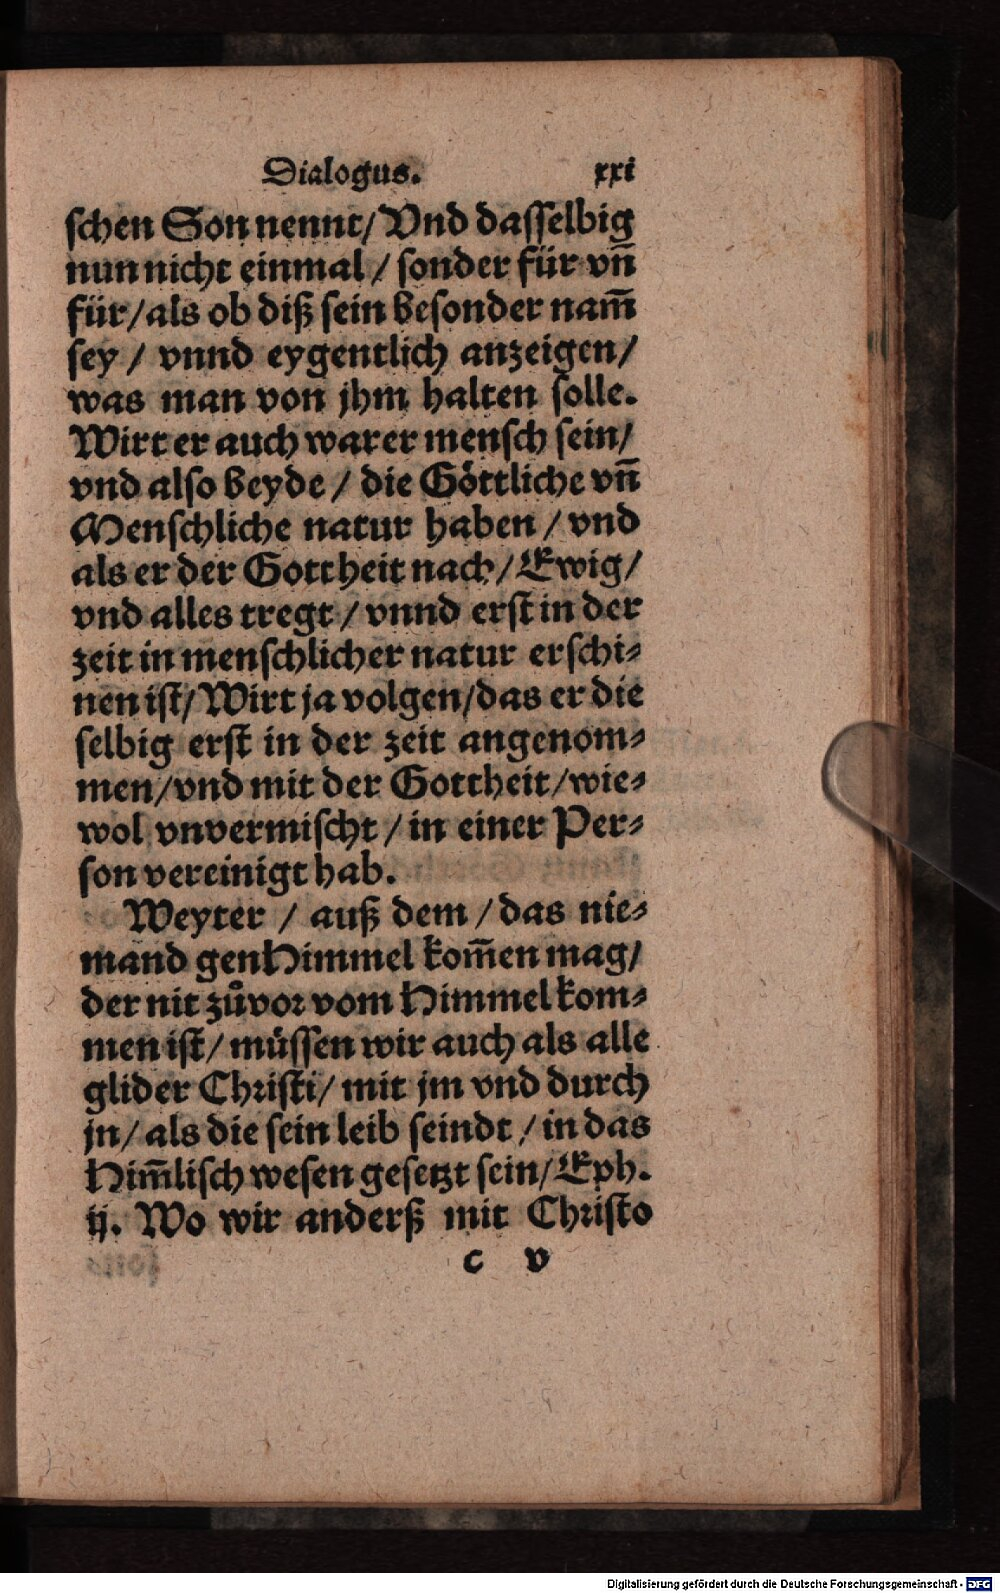 Dialogus. xxi
schen Son nennt/ Vnd dasselbig
nun nicht einmal / sonder für vn̄
für/ als ob diß sein besonder nam̄
sey / vnnd eygentlich anzeigen/
was man von jhm halten solle.
Wirt er auch warer mensch sein/
vnd also beyde / die Göttliche vn̄
Menschliche natur haben / vnd
als er der Gottheit nach/ Ewig/
vnd alles tregt / vnnd erst in der
zeit in menschlicher natur erschi⸗
nen ist/ Wirt ja volgen/ das er die
selbig erst in der zeit angenom⸗
men/ vnd mit der Gottheit/ wie⸗
wol vnvermischt / in einer Per⸗
son vereinigt hab.
Weyter / auß dem / das nie⸗
mand gen Himmel kom̄en mag/
der nit zůvor vom Himmel kom⸗
men ist/ müssen wir auch als alle
glider Christi/ mit jm vnd durch
jn/ als die sein leib seindt / in das
Him̄lisch wesen gesetzt sein/ Eph.
ij. Wo wir anderß mit Christo
c v
Digitalisierung gefördert durch die Deutsche Forschungsgemeinschaft - DFG